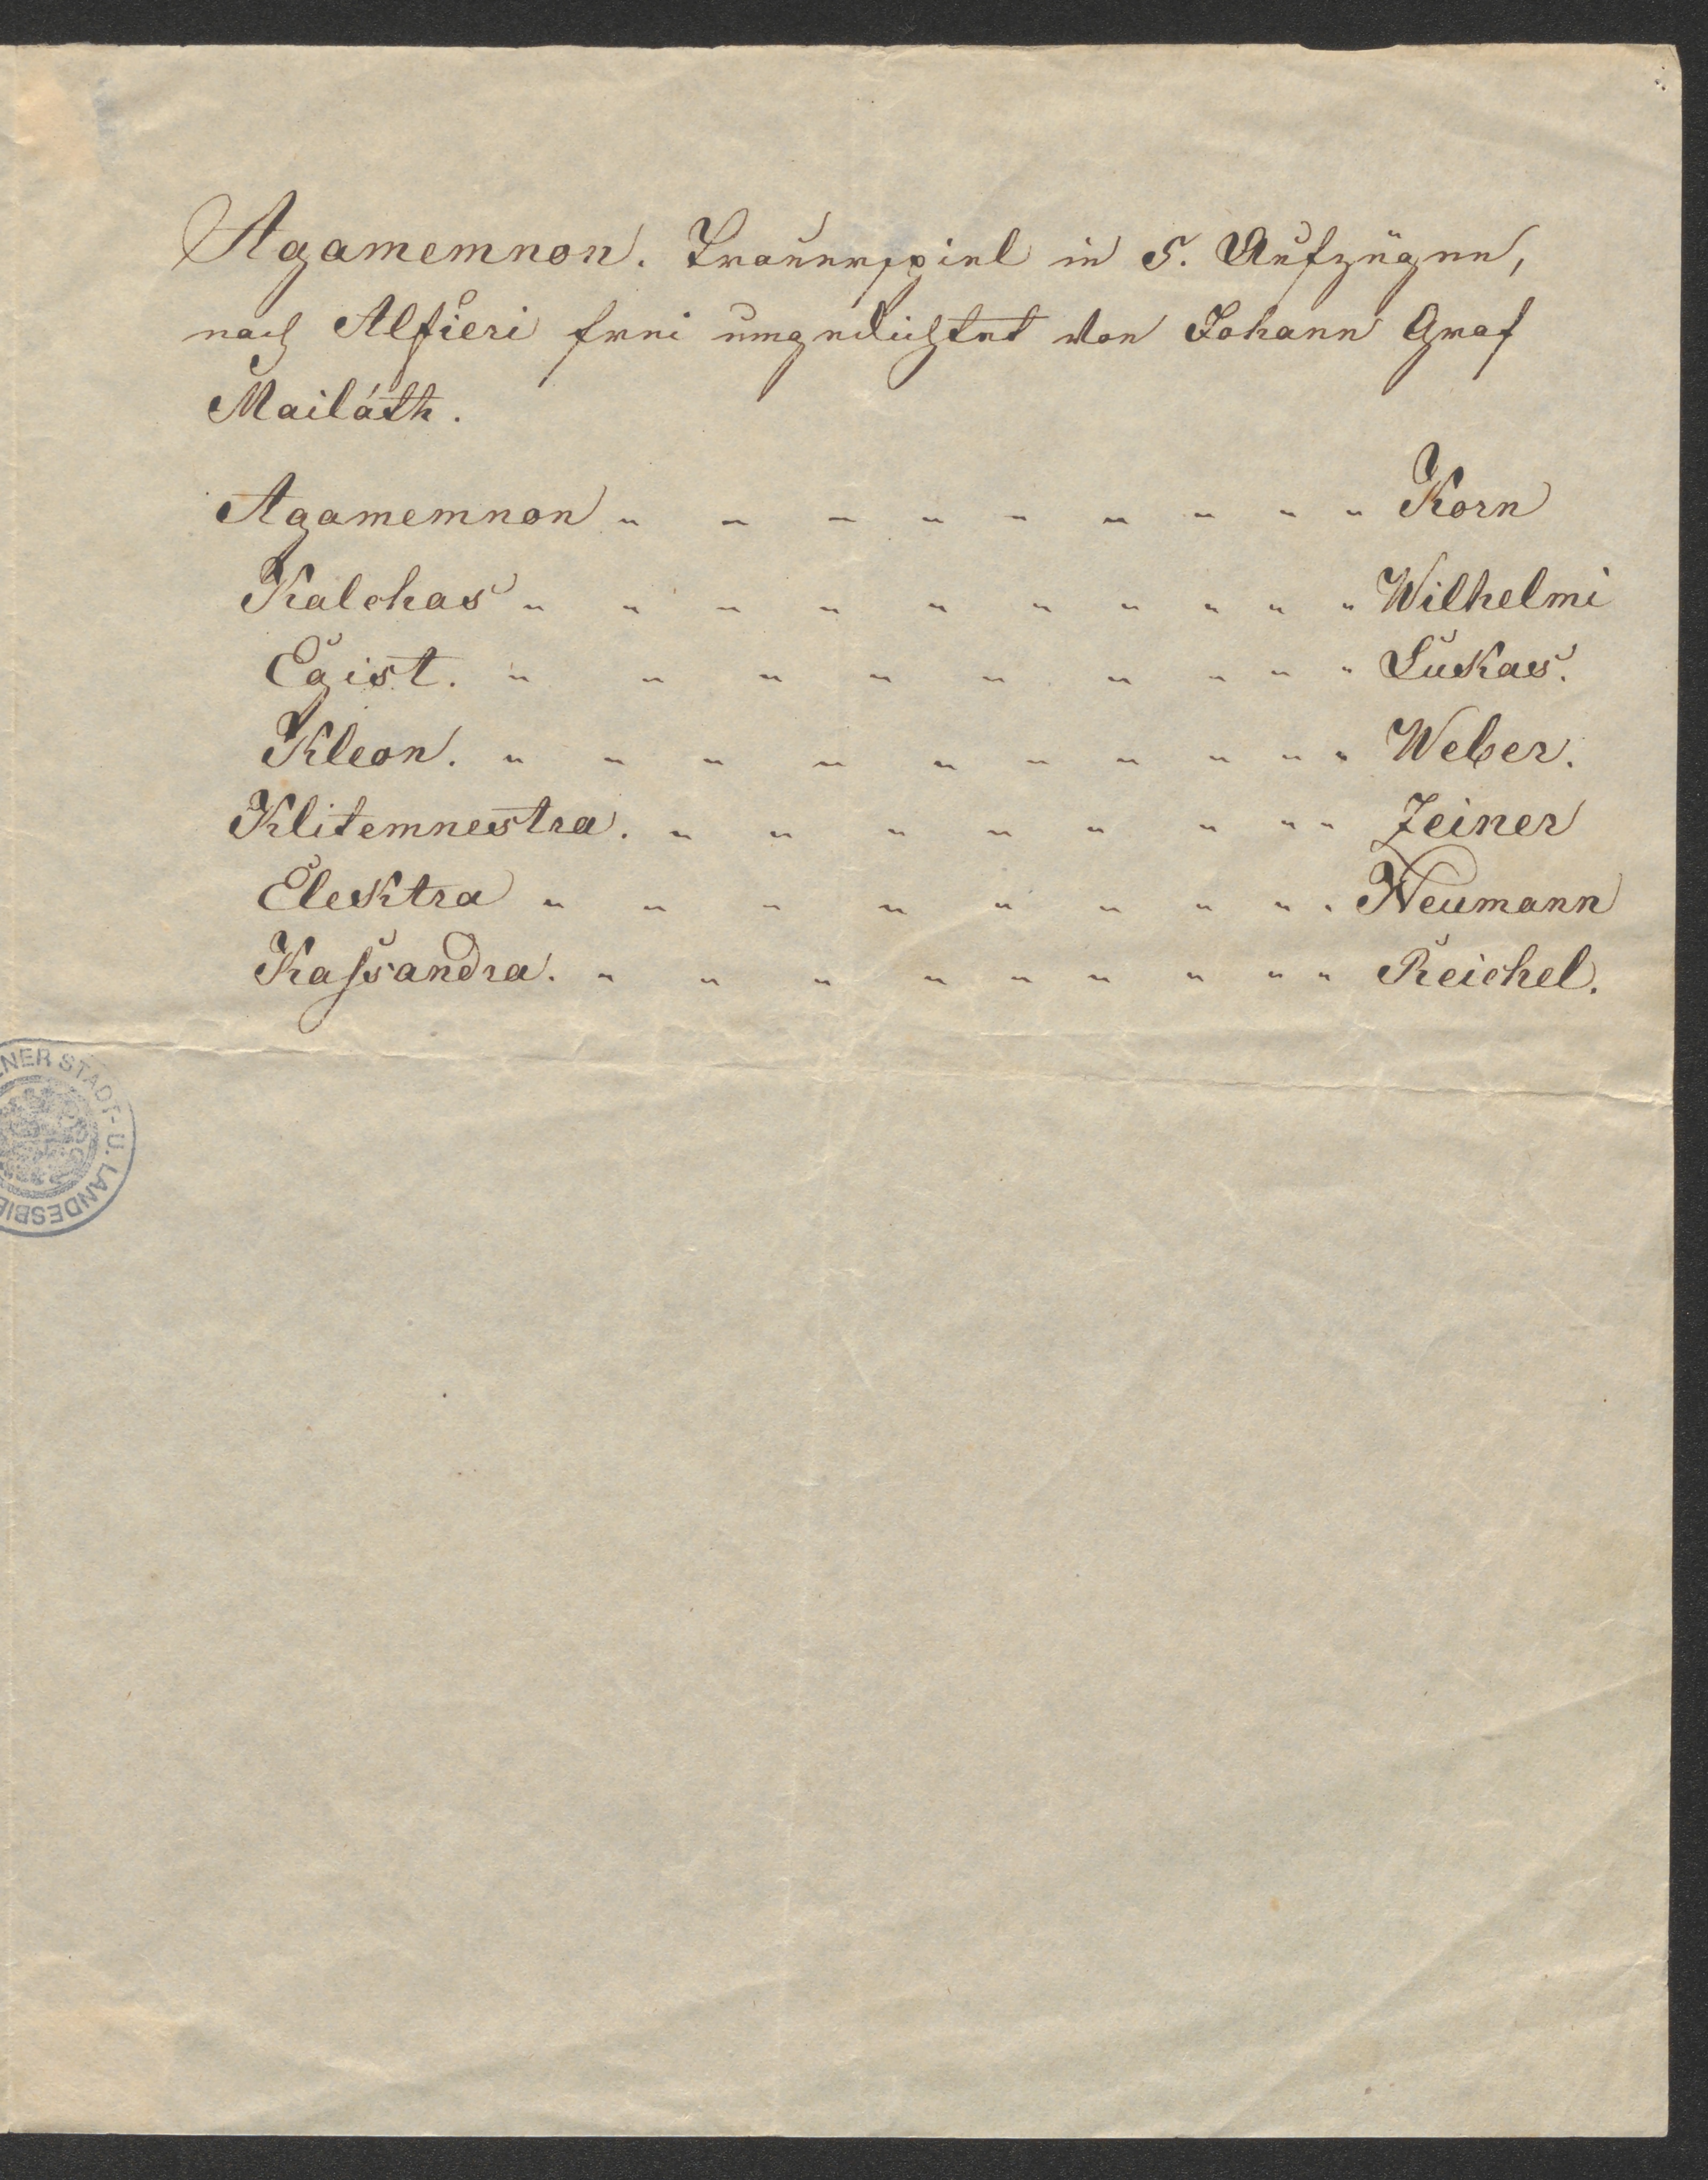 Agamemnon. Trauerspiel in 5. Aufzügen,
nach Alfieri frei umgedichtet von Johann Graf
Mailáth.
Agamemnon " " " " " " " " " Korn
Kalchas " " " " " " " " " " Wilhelmi
Egist. " " " " " " " " " Lukas.
Kleon. " " " " " " " " " " Weber.
Klitemnestra. " " " " " " " " Zeiner
Elektra " " " " " " " " " Neumann
Kaſsandra. " " " " " " " " " Reichel.
NER STADT- U. LANDESBIB